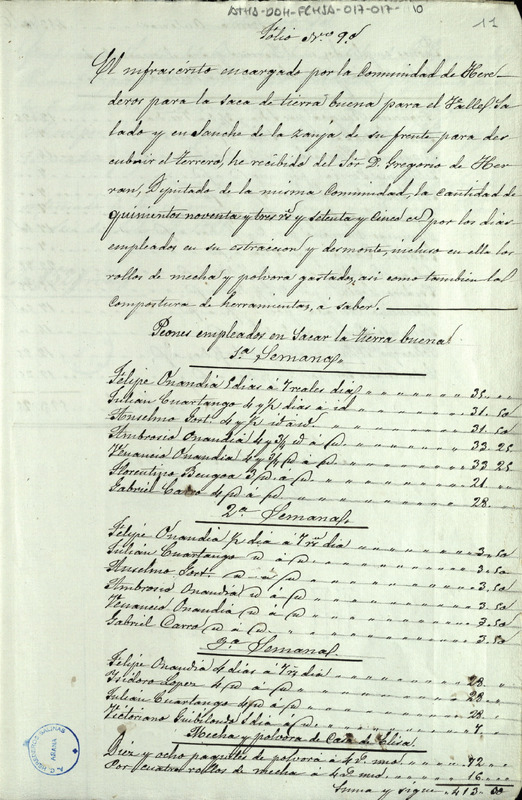 ATHA-DAH-FCHSA-017-017-10
11
Folio Nro 9º
El infrascrito encargado por la Comunidad de Here-
deros para la saca de tierra buena para el Valle Sa-
lado y en Sanche de la zanja de su frente para des-
cubrir el terrero, he recibido del Sor D. Gregorio de Her-
ran, Diputado de la misma Comunidad, la cantidad de
quinientos noventa y tres rs y setenta y cinco cs por los dias
empleados en su estraccion y desmonte, incluso en ella los
rollos de mecha y polvora gastados, asi como tambien la
compostura de herramientas, á saber.
Peones empleados en sacar la tierra buena
1ª Semana
Felipe Onandia 5 dias á 7 reales dia 35
Julian Cuartango 4 y ½ dias á id 31.50
Anselmo Gort. 4 y ½ id á id 31.50
Ambrosio Onandia 4 y ¾ id á id 33.25
Venancio Onandia 4 y ¾ id á id 33.25
Florentino Bengoa 3 id á id 21
Gabriel Carro 4 id á id 28
2ª Semana
Felipe Onandia ½ dia á 7 rs dia 3.50
Julian Cuartango id á id 3.50
Anselmo Gort. id á id 3.50
Ambrosio Onandia id á id 3.50
Venancio Onandia id á id 3.50
Gabriel Carro id á id 3.50
3ª Semana
Felipe Onandia 4 dias á 7 rs dia 28
Isidoro Lopez 4 id á id 28
Julian Cuartango 4 id á id 28
Victoriano Guibelonde 1 dia á id 7
Mecha y polvora de Casa de Elisa
Diez y ocho paquetes de polvora á 4 rs uno 72
Por cuatro rollos de mecha á 4 rs uno 16
Suma y sigue 413.00
SALINAS
AÑANA